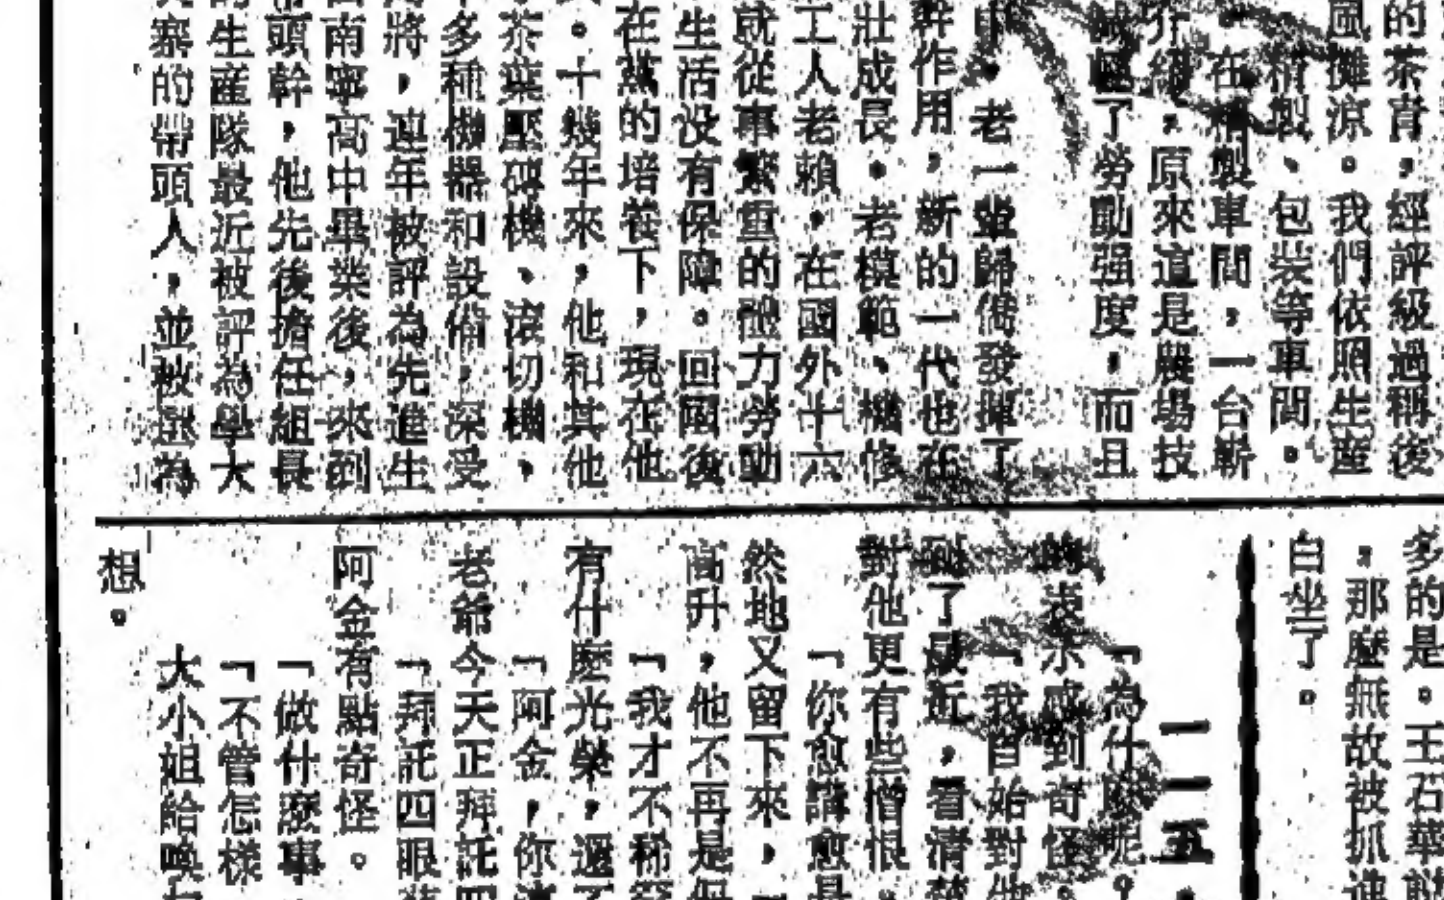 的茶青，經評級過稱後
風攤涼。我們依照生産
精製、包裝等車間。
在精製車間，一台嶄
介紹，原來這是農場技
減輕了勞動强度，而且
中，老一輩歸僑發揮了
幹作用，新的一代也在
壯成長。老模範、機修
工人老賴，在國外十六
就從事繁重的體力勞動
生活没有保障。回國後
在黨的培養下，現在他
。十幾年來，他和其他
茶葉壓磚機、滾切機、
多種機器和設備，深受
將，連年被評為先進生
南寧高中畢業後，來到
頭幹，他先後擔任組長
的生産隊最近被評為學大
寨的帶頭人，並被選為
多的是。王石華
，那麼無故被抓進
白坐了。
一一五
「為什麼呢。
表示感到奇怪。
「我自始對他
到了最近，看清楚
對他更有些憎恨
「你愈講愈是
然地又留下來，
高升，他不再是
「我才不稀罕
有什麼光榮，還
「阿金，你
老爺今天正拜託四
「拜託四眼
阿金有點奇怪。
「做什麼事
「不管怎樣
大小姐給喚
想。